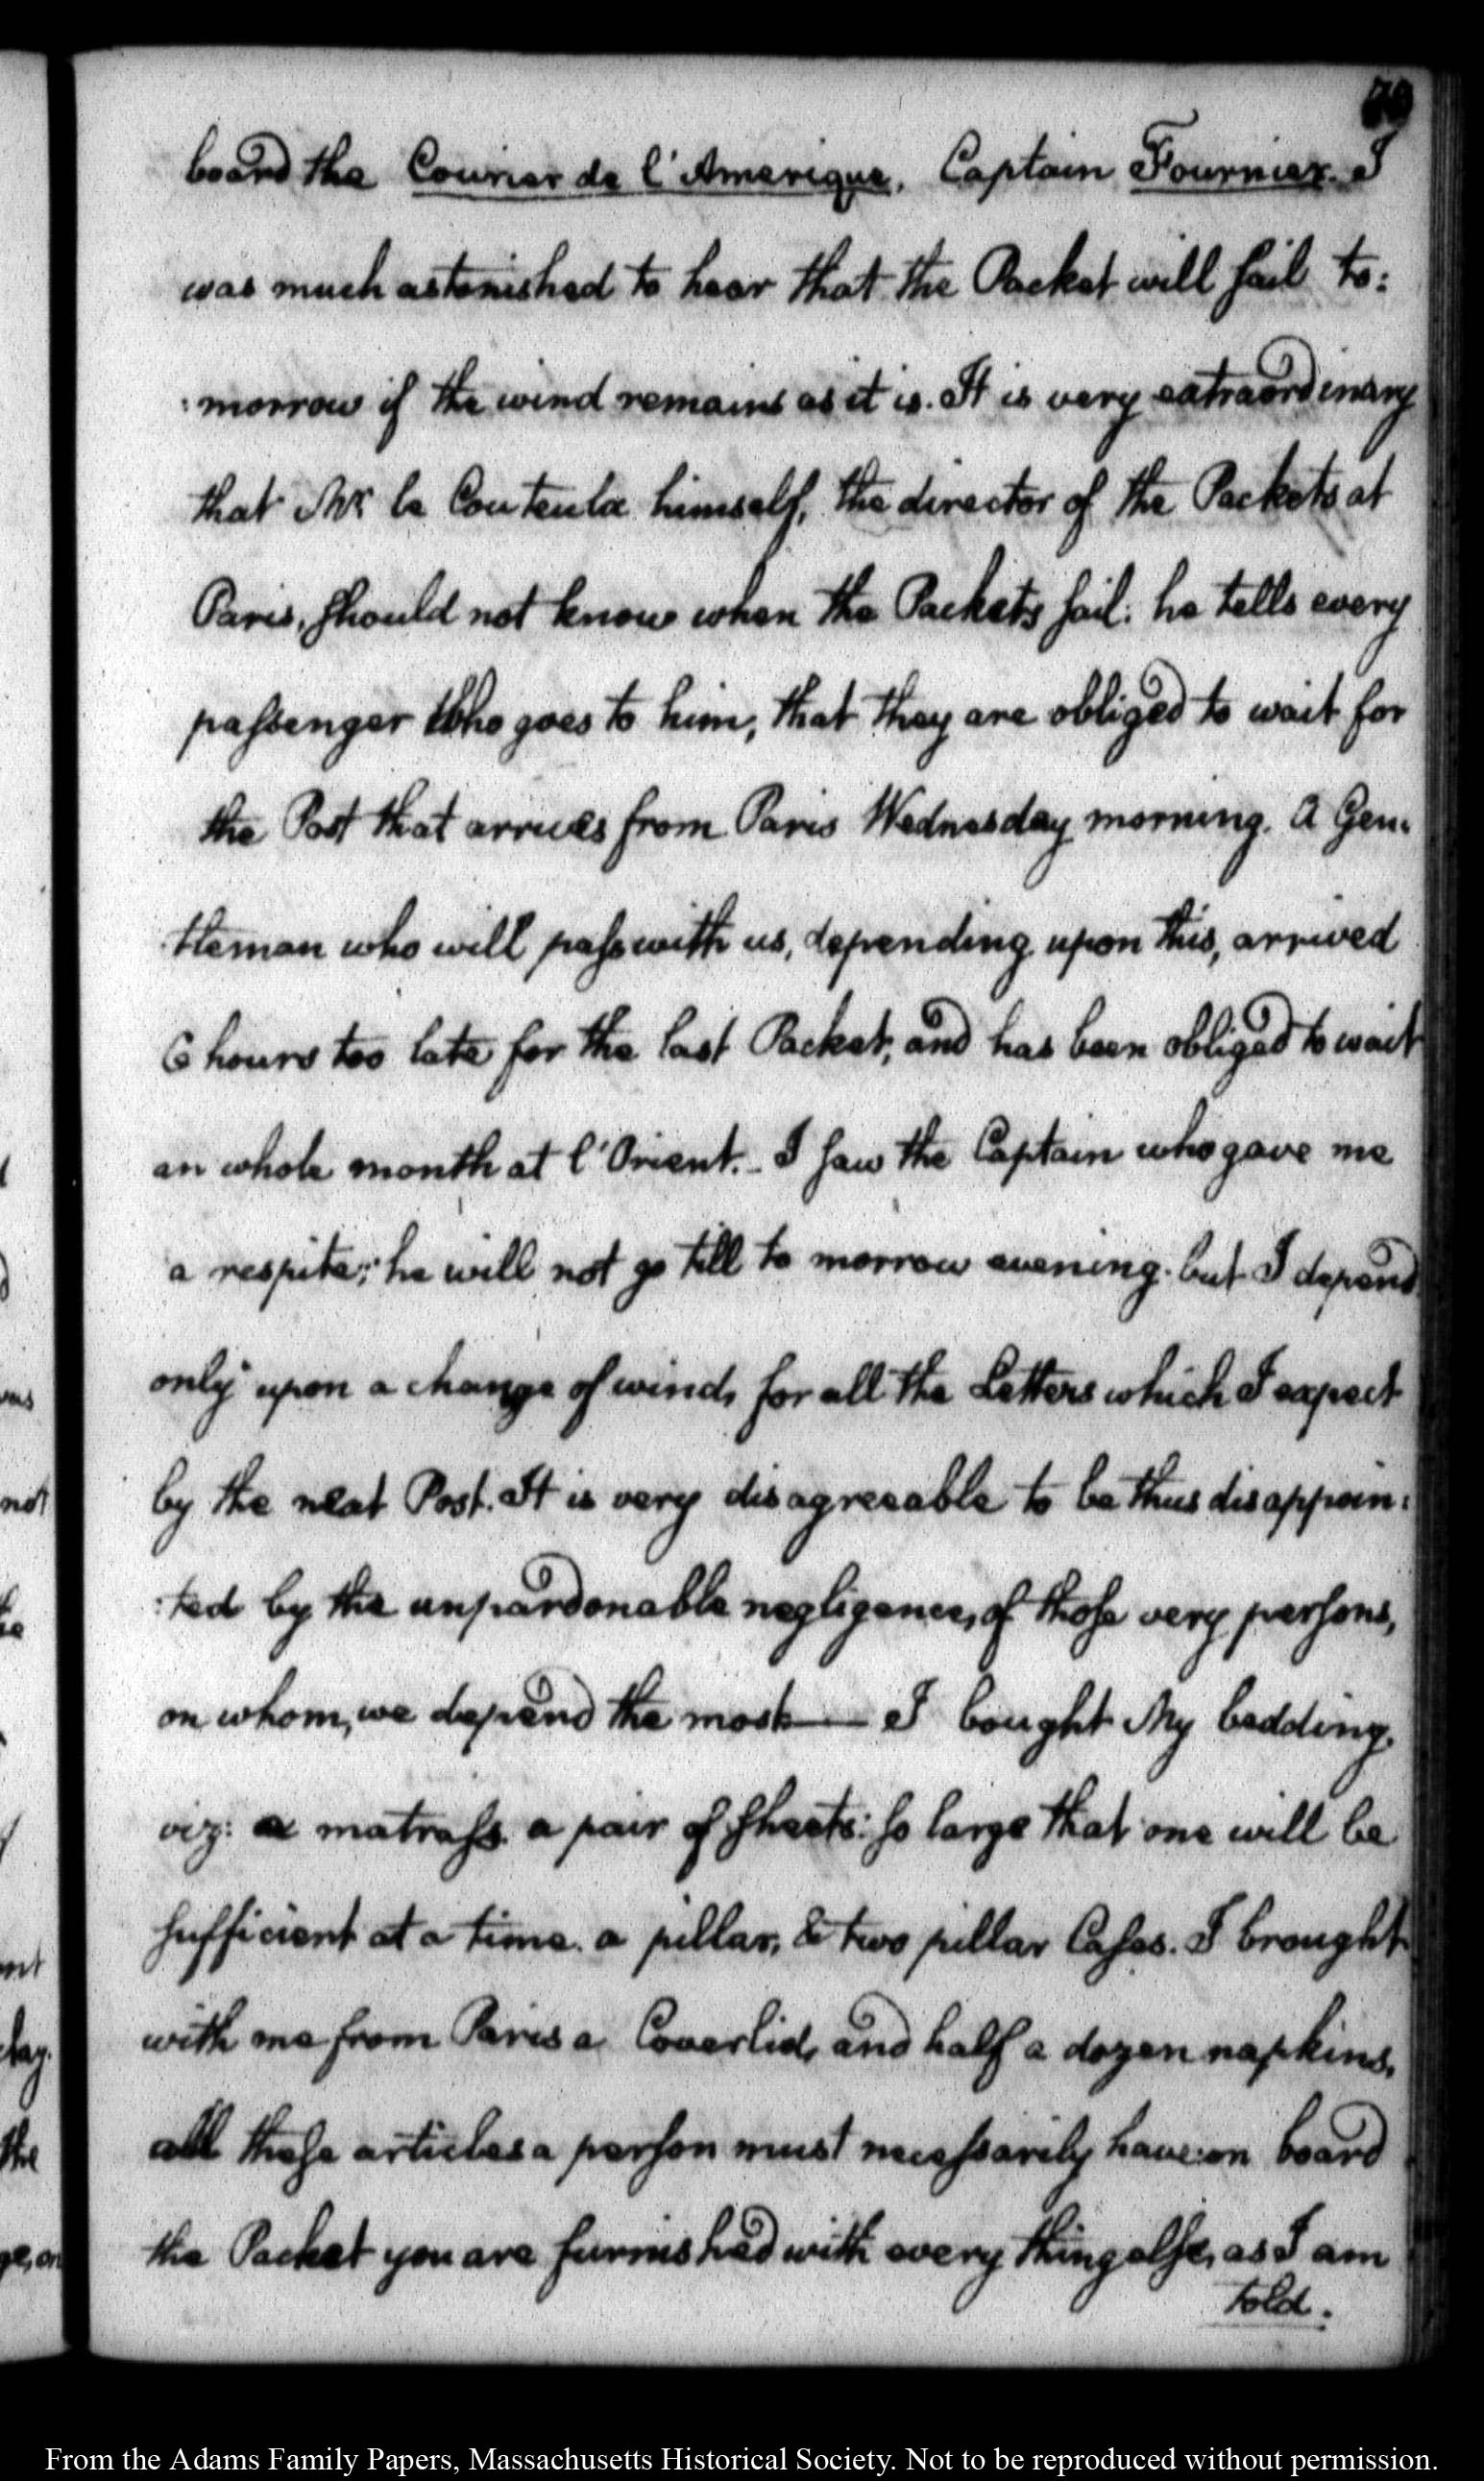 board the Courier de l'Amerique, Captain Fournier. I
was much astonished to hear that the Packet will sail to:
:morrow if the wind remains as it is. It is very extraordinary
that Mr. le Couteulx himself, the director of the Packets at
Paris, should not know when the Packets sail: he tells every
passenger who goes to him, that they are obliged to wait for
the Post that arrives from Paris Wednesday morning. A Gen:
:tleman who will pass with us, depending upon this, arrived
6 hours too late for the last Packet, and has been obliged to wait
an whole month at l'Orient. I saw the Captain who gave me
a respite; he will not go till to morrow evening. but I depend
only upon a change of wind, for all the Letters which I expect
by the next Post. It is very disagreeable to be thus disappoin:
:ted by the unpardonable negligence, of those very persons,
on whom, we depend the most—— I bought My bedding.
viz: a matrass. a pair of sheets: so large that one will be
sufficient at a time. a pillar, & two pillar Cases. I brought
with me from Paris a Coverlid, and half a dozen napkins.
all these articles a person must necessarily have on board
the Packet you are furnished with every thing else, as I am
told.
From the Adams Family Papers, Massachusetts Historical Society. Not to be reproduced without permission.